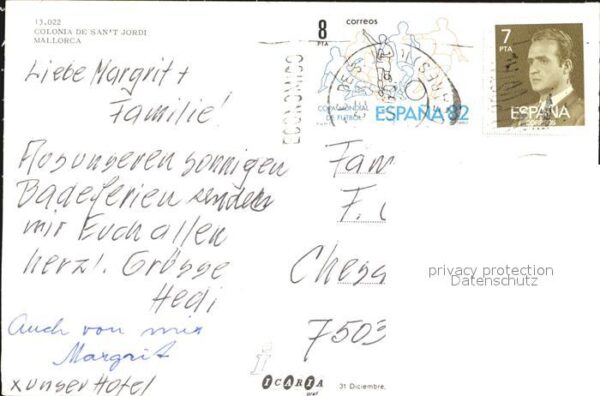 13.022
COLONIA DE SAN'T JORDI
MALLORCA
Liebe Margrit +
Familie!
Aus unseren sonnigen
Badeferien senden
mir Euch allen
herzl. Grüsse
Hedi
Auch von mir
Margrit
x unser Hotel
8
PTA
correos
COPA MUNDIAL
DE FUTBOL
ESPAÑA 82
7
PTA
ESPAÑA
CORREOS
ECONOMICO
Fam
F.
Chesa
7503
privacy protection
Datenschutz
ICARIA
31 Diciembre,